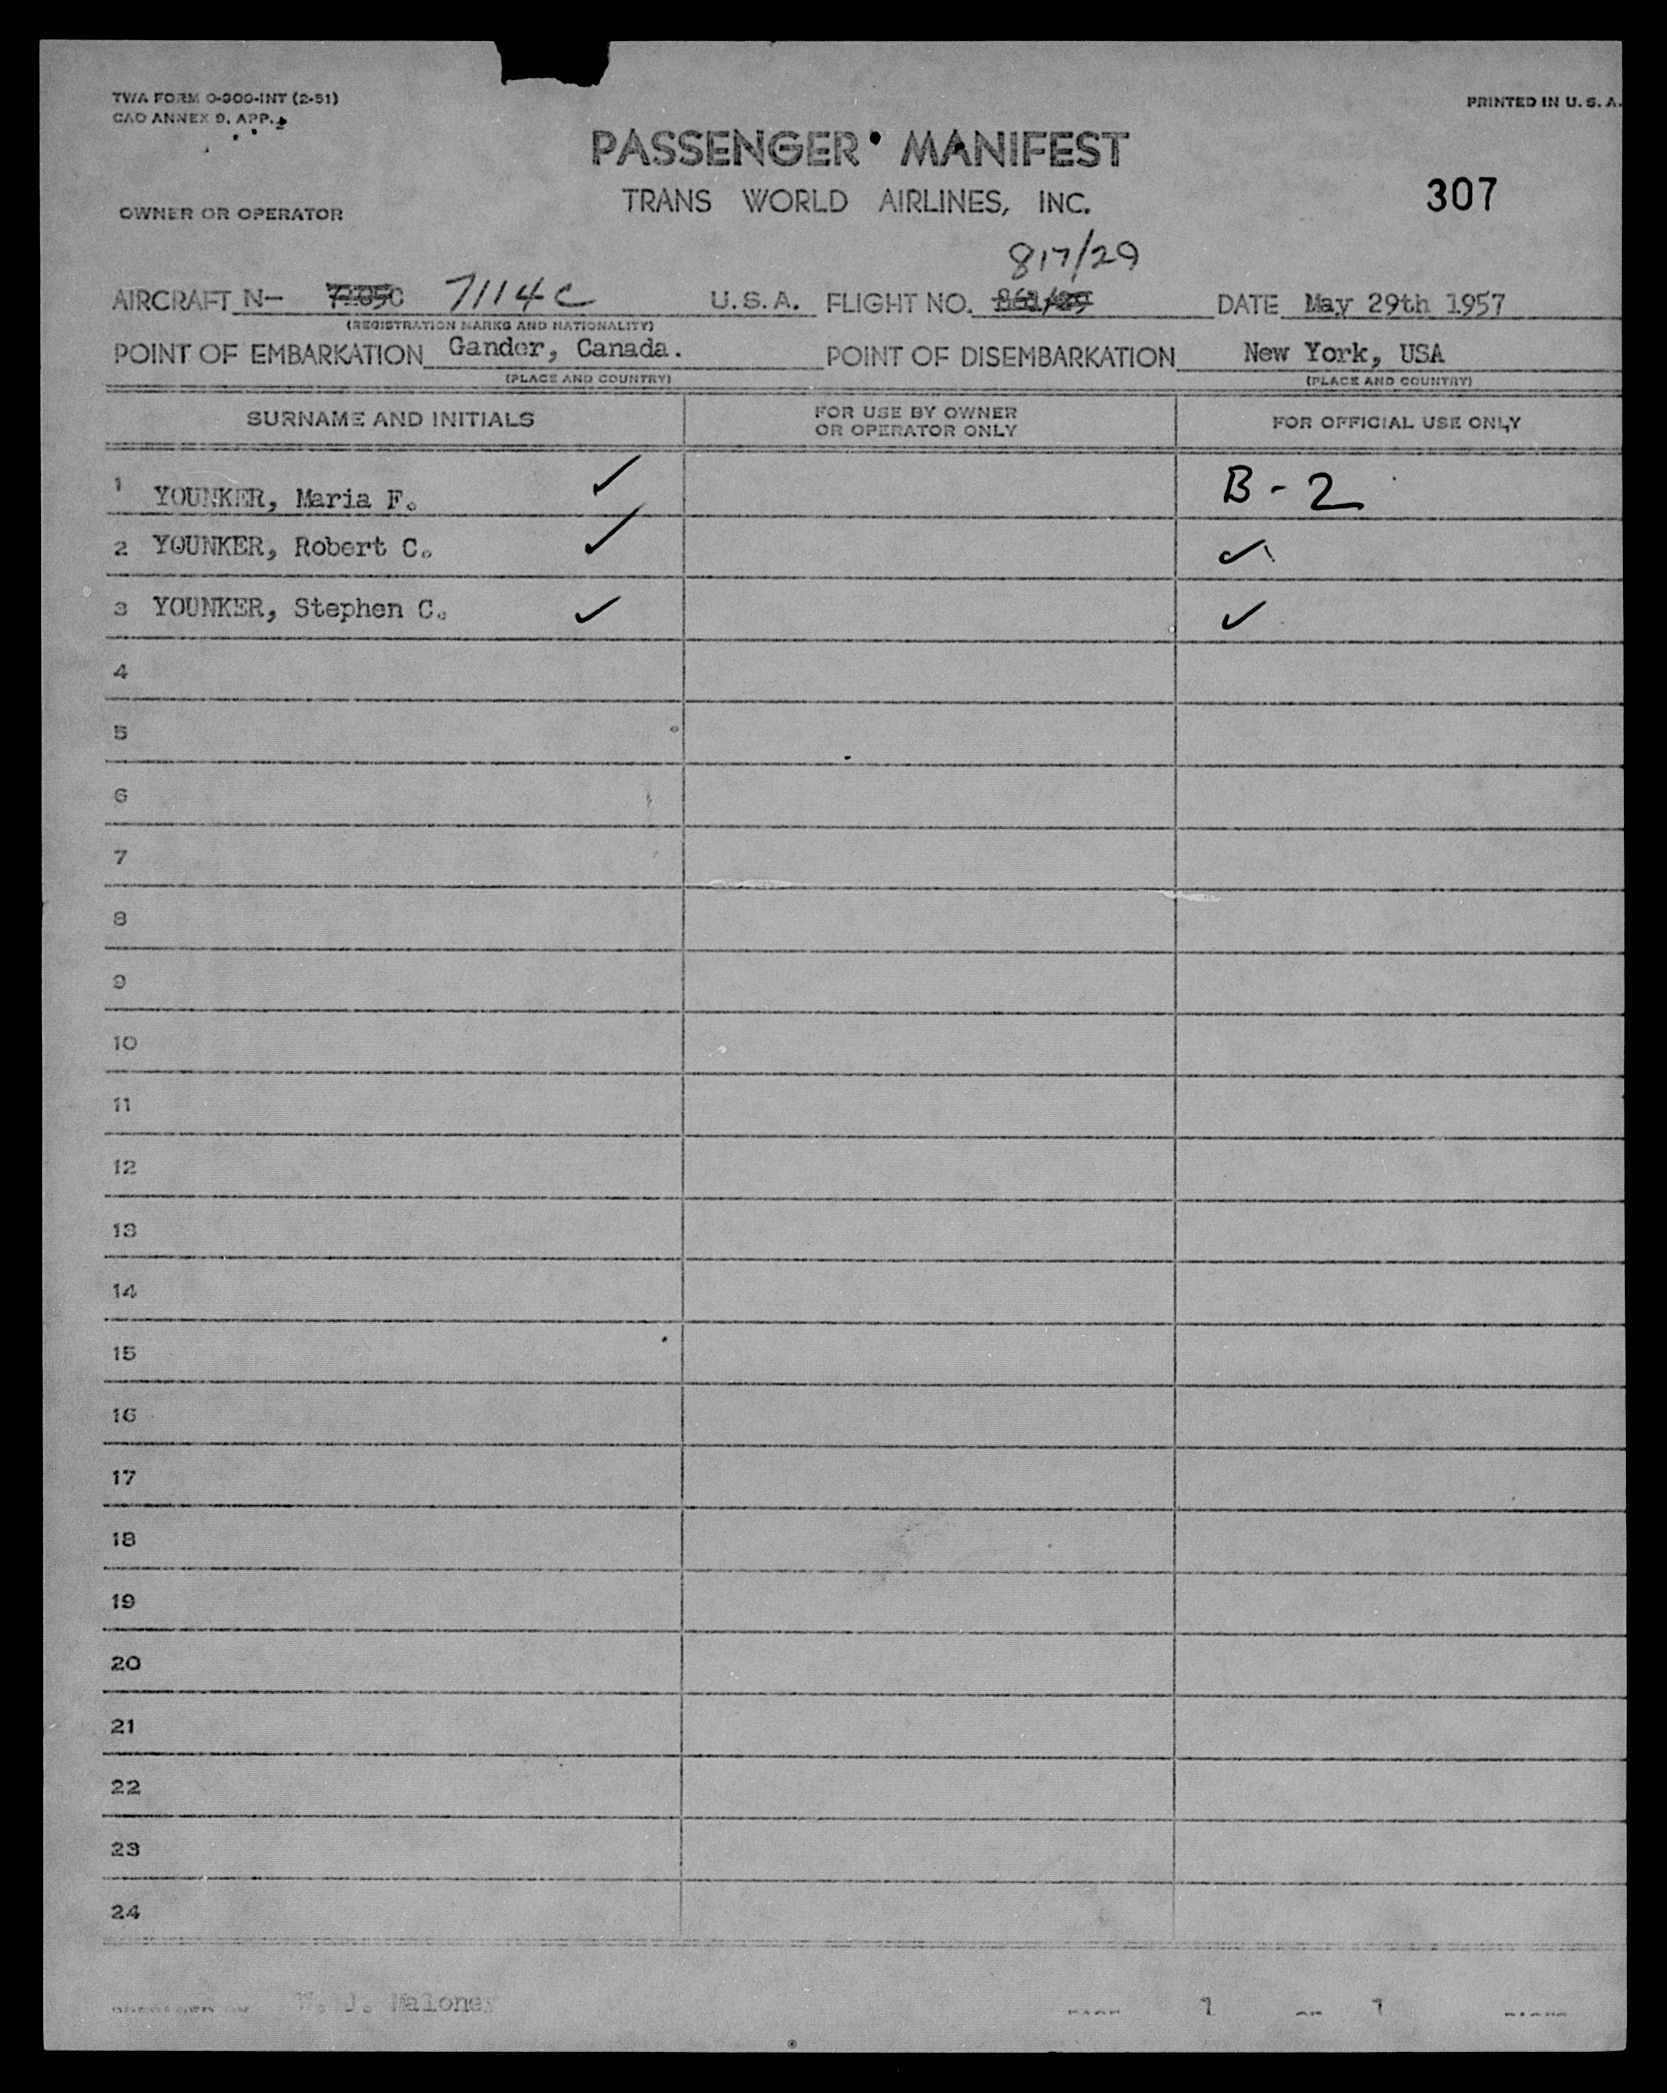 TWA FORM O-300-INT (2-51)
CAO ANNEX 9, APP. 2
PRINTED IN U. S. A.
PASSENGER MANIFEST
TRANS WORLD AIRLINES, INC.
307
OWNER OR OPERATOR
817/29
AIRCRAFT N- 7114C U.S.A. FLIGHT NO. DATE May 29th 1957
(REGISTRATION MARKS AND NATIONALITY)
POINT OF EMBARKATION Gander, Canada. POINT OF DISEMBARKATION New York, USA
(PLACE AND COUNTRY) (PLACE AND COUNTRY)
SURNAME AND INITIALS FOR USE BY OWNER OR OPERATOR ONLY FOR OFFICIAL USE ONLY
1 YOUNKER, Maria F. ✓ B-2
2 YOUNKER, Robert C. ✓ ✓
3 YOUNKER, Stephen C. ✓ ✓
4
5
6
7
8
9
10
11
12
13
14
15
16
17
18
19
20
21
22
23
24
W. J. Maloney 1 1